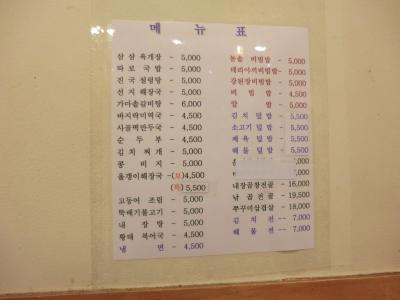 메 뉴 표
삼 삼 육 개 장 - 5,000
따 로 국 밥 - 5,000
진 국 설 렁 탕 - 5,000
선 지 해 장 국 - 5,000
가마솥갈비탕 - 6,000
바지락미역국 - 4,500
사골떡만두국 - 4,500
순 두 부 - 4,500
김 치 찌 개 - 5,000
콩 비 지 - 5,000
올갱이해장국 -(보)4,500
(특) 5,500
고등어 조림 - 5,000
뚝배기불고기 - 5,000
내 장 탕 - 5,000
황태 북어국 - 4,500
냉 면 - 4,500
돌솥 비빔밥 - 5,000
데리야끼비빔밥 - 5,000
강된장비빔밥 - 5,000
비 빔 밥 - 4,500
알 밥 - 5,000
김 치 덮 밥 - 5,500
소고기 덮밥 - 5,500
제 육 덮 밥 - 5,500
해 물 덮 밥 - 5,500
,000
,000
내장곱창전골 - 16,000
낙 곱 전 골 - 19,500
쭈꾸미삼겹살 - 18,000
김 치 전 -- 7,000
해 물 전 -- 7,000